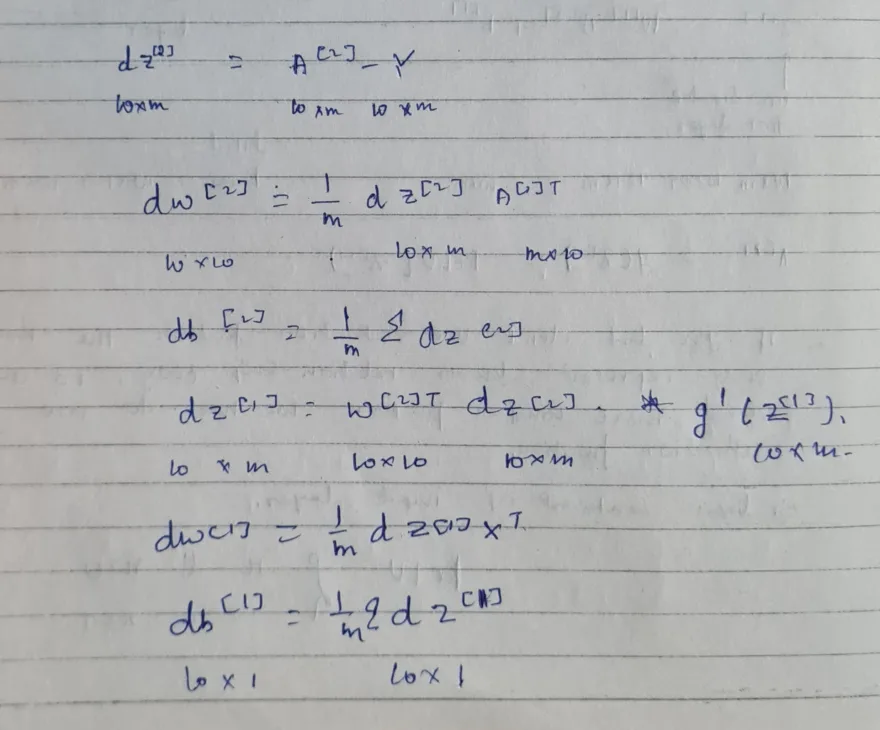 dz[2] = A[2] - Y
10xm 10xm 10xm
dw[2] = 1/m dz[2] A[1]T
10x10 10xm mx10
db[2] = 1/m Σ dz[2]
dz[1] = w[2]T dz[2] . * g'(z[1]).
10 x m 10x10 10xm 10xm.
dw[1] = 1/m dz[1] XT
db[1] = 1/m Σ dz[1]
10x1 10x1